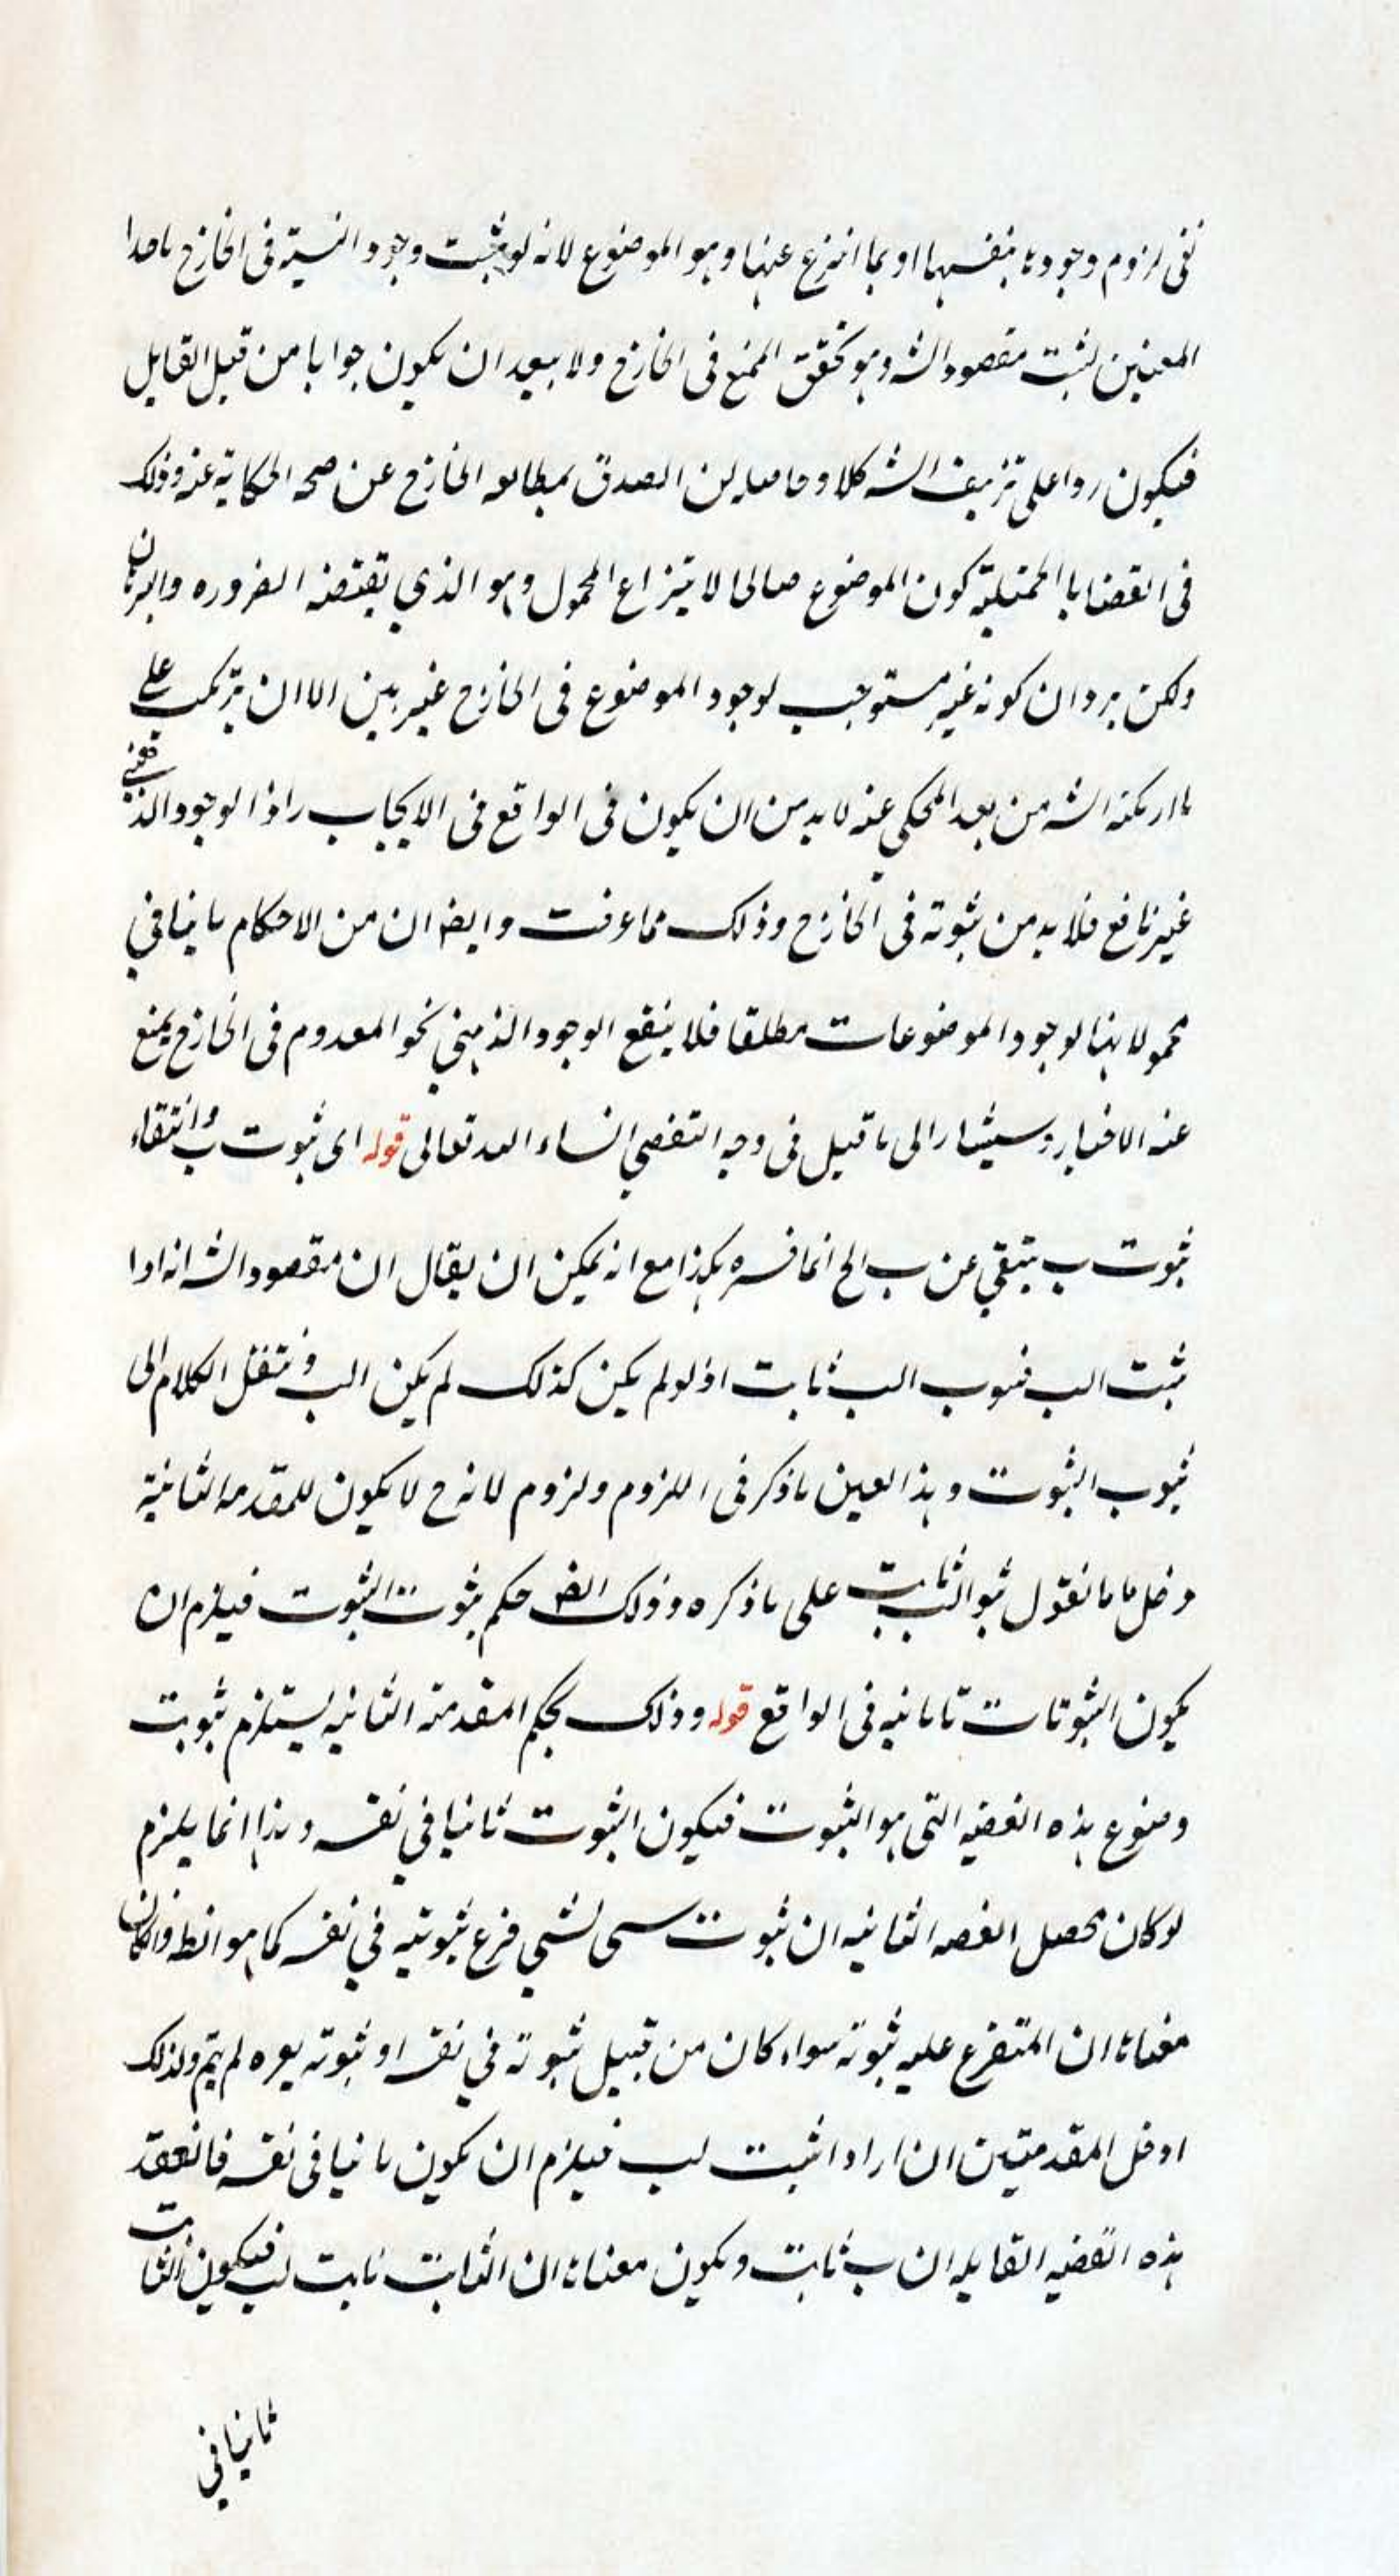 نفى لزوم وجودها بنفسها او بما انتزع عنها وهو الموضوع لانه لو ثبت وجود النسبة فى الخارج باحدا
المعنيين لثبت مقصود الشه وهو تحقق الممتنع فى الخارج ولا يبعد ان يكون جوابا من قبل القايل
فيكون ردا على تزييف الشه كلا وحاصله ان الصدق بمطابعه الخارج عن صحه الحكاية عنه وذلك
فى القضايا الحملية كون الموضوع صالحا لانتزاع المحمول وهو الذي يقتضه الضروره والبرهان
ولكن يرد ان كونه غير مستوجب لوجود الموضوع فى الخارج غير بين الا ان يرتكب على
ما ارتكبه الشه من بعد المحكي عنه لا بد من ان يكون فى الواقع فى الايجاب واذا الوجود الذهني
غير نافع فلا بد من ثبوته فى الخارج وذلك مما عرفت وايضا ان من الاحكام ما ينافي
محمولاتها لوجود الموضوعات مطلقا فلا ينفع الوجود الذهني نحو المعدوم فى الخارج يمتنع
عنه الاخبار وسيشار الى ما قيل فى وجه التفصي انشاء الله تعالى قوله اى ثبوت ب وانتفاء
ثبوت ب ينتفي عن ب الخ انما فسره بهذا مع انه يمكن ان يقال ان مقصود الشه انه اذا
ثبت الب فثبوت الب ثابت اذ لو لم يكن كذلك لم يكن الب وننقل الكلام الى
ثبوت الثبوت وهذا لعين ما ذكر فى اللزوم ولزوم لانه ح لا يكون للمقدمه الثانية
دخل ما نقول ثبوت الب ثابت على ما ذكره وذلك ايضا حكم بثبوت الثبوت فيلزم ان
يكون الثبوتات ثابتة فى الواقع قوله وذلك بحكم المقدمة الثانيه يستلزم ثبوت
وضوع هذه القضيه التى هو الثبوت فيكون الثبوت ثابتا في نفسه وهذا انما يلزم
لو كان محصل القضه الثانيه ان ثبوت شى لشي فرع ثبوته في نفسه كما هو الظ وان كان
معناها ان المتفرع عليه ثبوته سواء كان من قبيل ثبوته في نفسه او ثبوته لغيره لم يتم ولذلك
ادخل المقدمتين ان اراد اثبت لب فيلزم ان يكون ثابتا فى نفسه فانعقد
هذه القضيه القايله ان ب ثابت ويكون معناها ان الثابت ثابت لب فيكون الثابت
ثابتا في